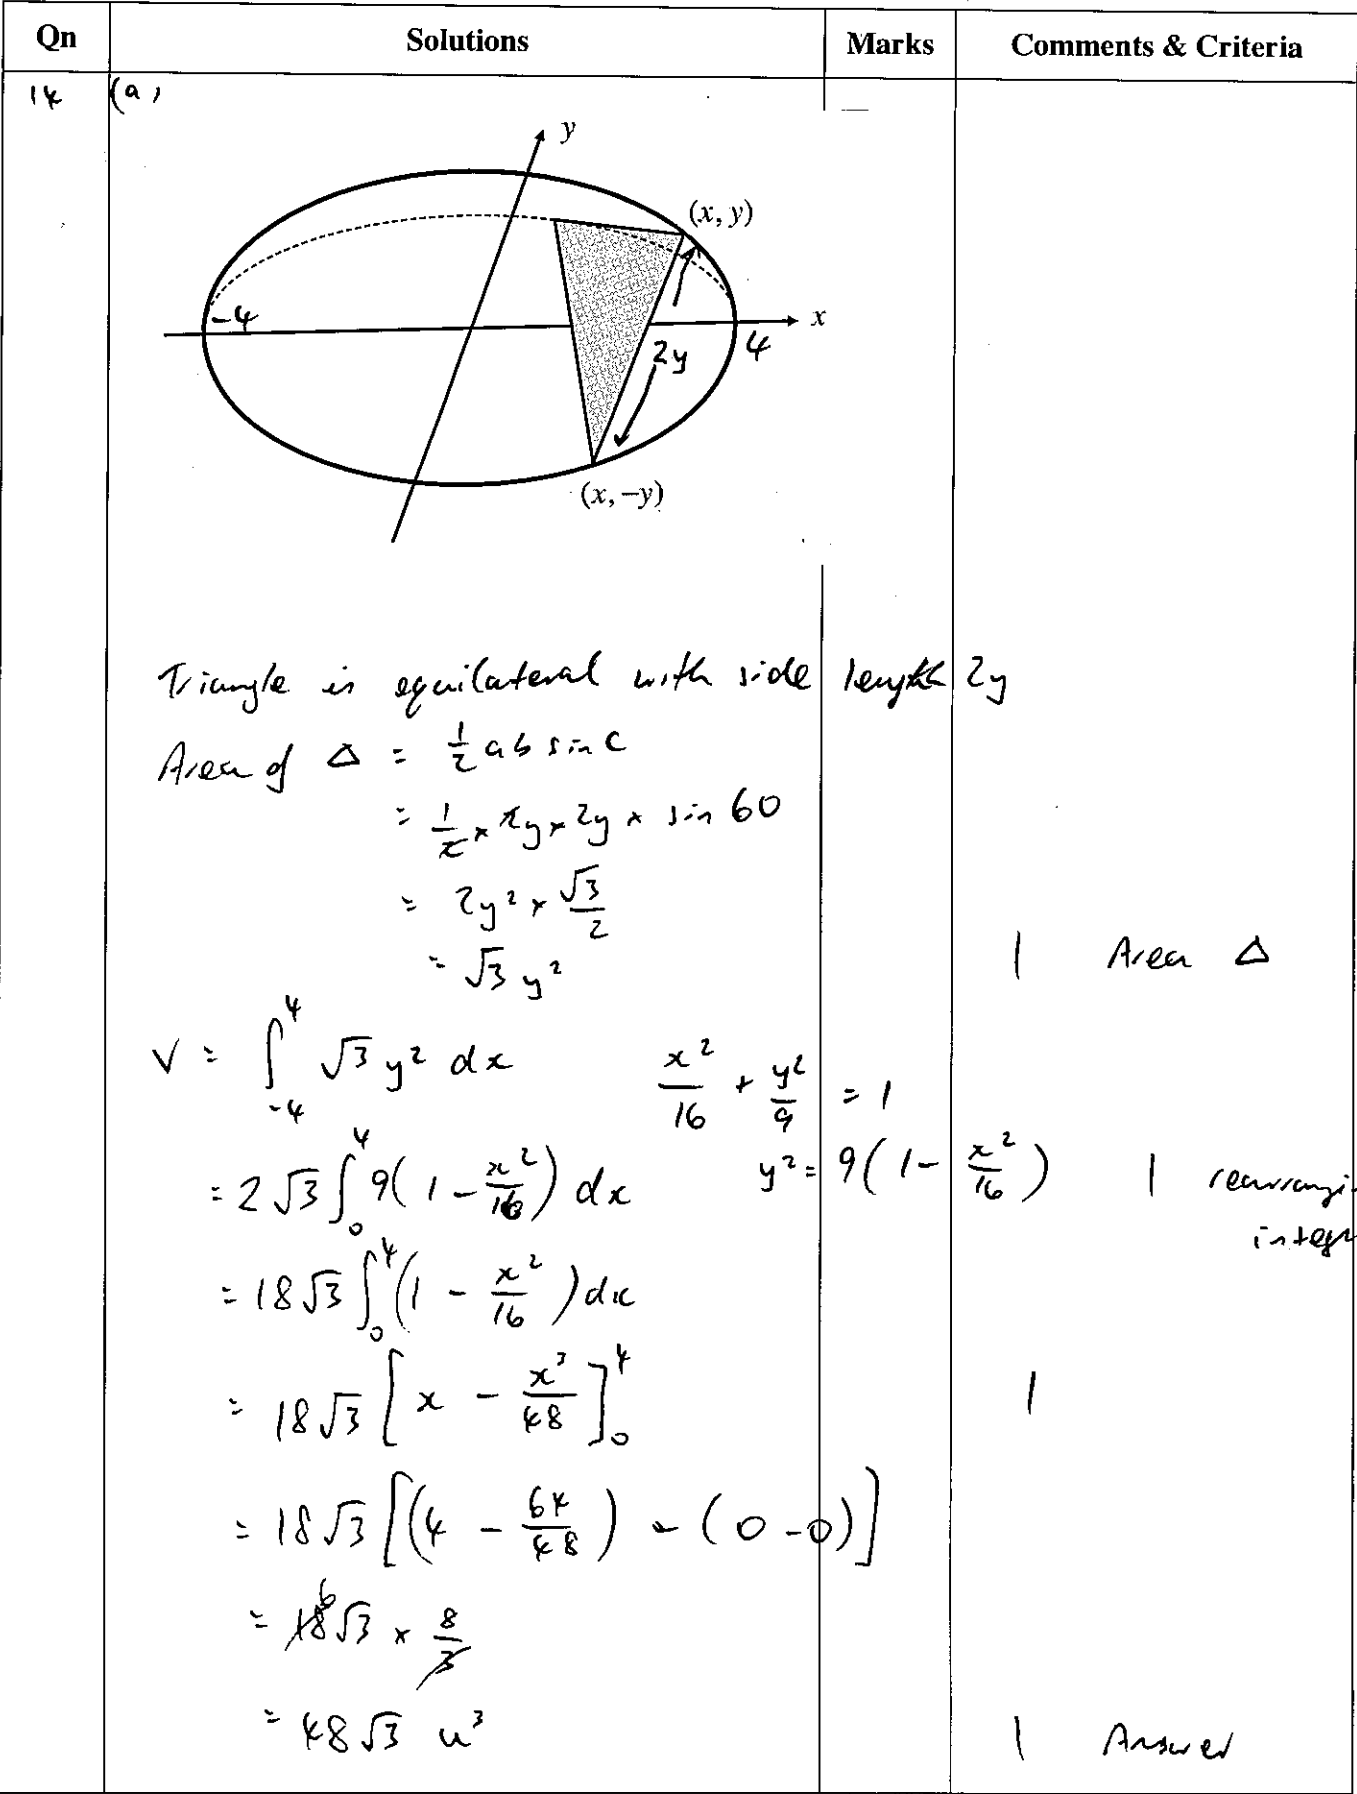 Qn Solutions Marks Comments & Criteria
14 (a)
y
(x, y)
-4
x
4
2y
(x, −y)
Triangle is equilateral with side length 2y
Area of Δ = 1/2 ab sin C
= 1/2 × 2y × 2y × sin 60
= 2y² × √3/2
= √3 y² 1 Area Δ
V = ∫₋₄⁴ √3 y² dx x²/16 + y²/9 = 1
= 2√3 ∫₀⁴ 9(1 - x²/16) dx y² = 9(1 - x²/16) 1 rearrangi
integr
= 18√3 ∫₀⁴ (1 - x²/16) dx
= 18√3 [x - x³/48]₀⁴ 1
= 18√3 [(4 - 64/48) - (0 - 0)]
= 18 6 √3 × 8/3
= 48√3 u³ 1 Answer